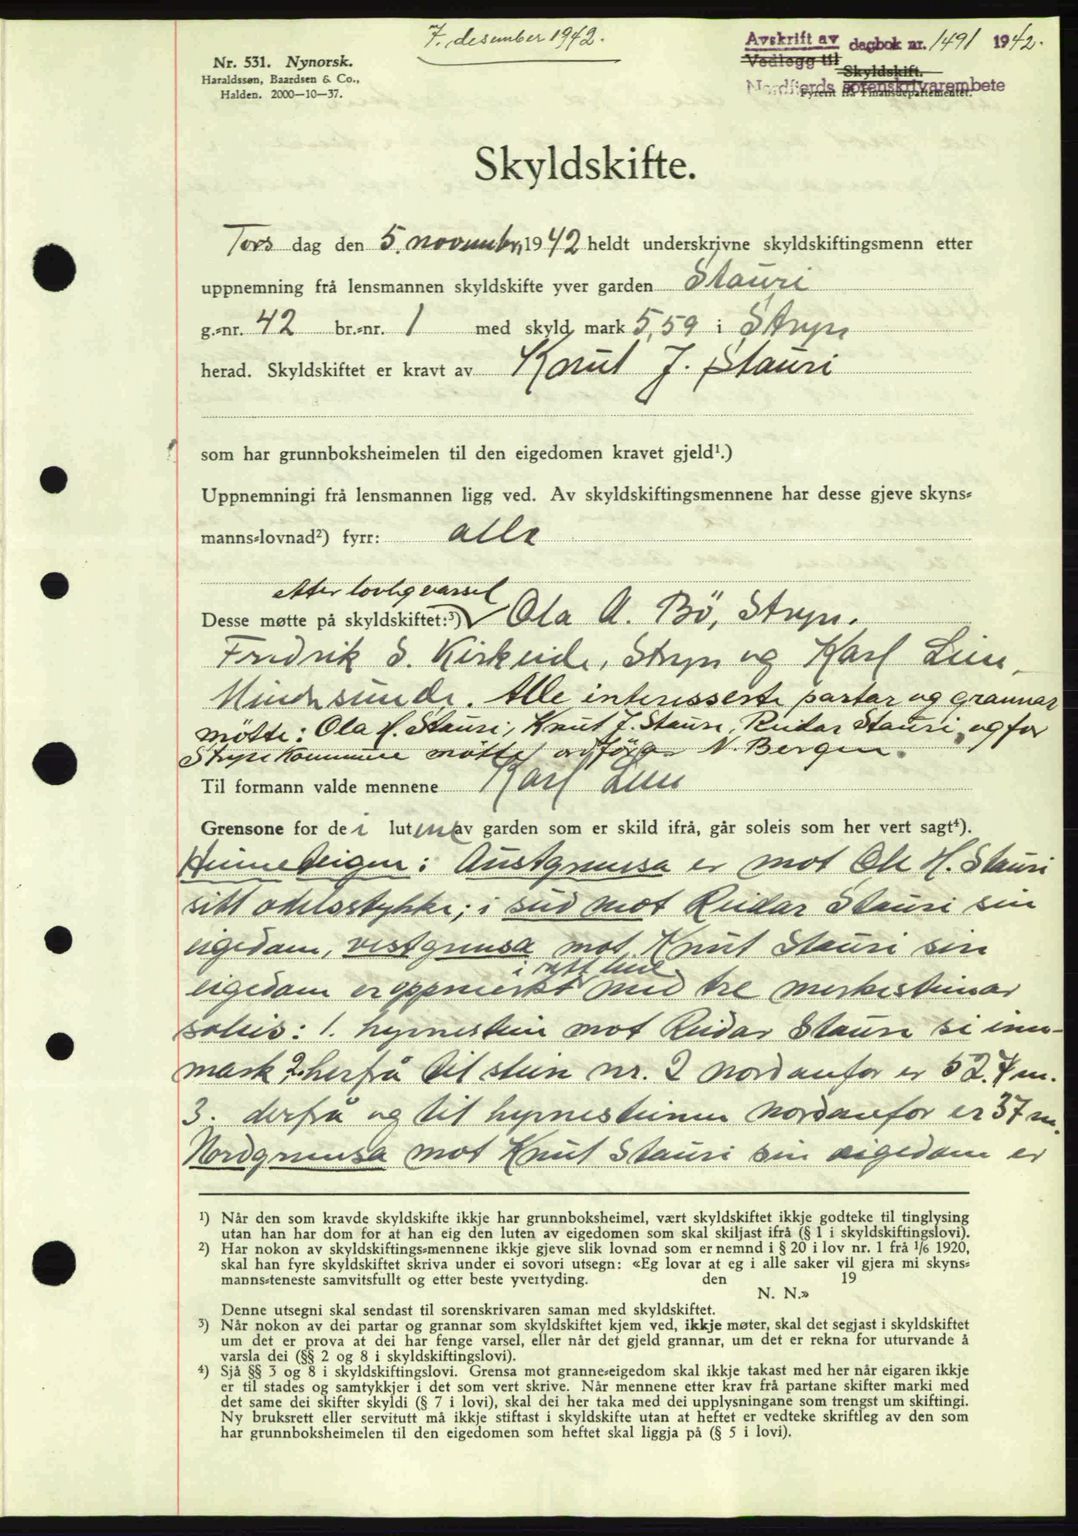 7. desember 1942.
Avskrift av dagbok nr. 1491 1942.
Vedlegg til
Skyldskift.
Nordfjords sorenskrivarembete
Fyremt frå Finansdepartementet.
Nr. 531. Nynorsk.
Haraldssøn, Baardsen & Co.,
Halden. 2000—10—37.
Skyldskifte.
Tors dag den 5. novembr, 1942 heldt underskrivne skyldskiftingsmenn etter
uppnemning frå lensmannen skyldskifte yver garden Stauri
g.-nr. 42 br.-nr. 1 med skyld mark 5,59 i Stryn
herad. Skyldskiftet er kravt av Knut J. Stauri
som har grunnboksheimelen til den eigedomen kravet gjeld¹.)
Uppnemningi frå lensmannen ligg ved. Av skyldskiftingsmennene har desse gjeve skyns-
manns-lovnad²) fyrr: alle
etter lovlig varsel
Desse møtte på skyldskiftet:³) Ola A. Bö, Stryn.
Fredrik S. Kirkeide, Stryn og Karl Lien,
Hindsunde. Alle interesserte partar og grannar
møtte: Ola H. Stauri, Knut J. Stauri, Reidar Stauri, og for
Stryn kommune møtte ordförar N. Bergen.
Til formann valde mennene Karl Lien
Grensone for dei lutene av garden som er skild ifrå, går soleis som her vert sagt⁴).
Heimeteigen: Austgrensa er mot Ole H. Stauri
sitt odelsstykke; i sud mot Reidar Stauri sin
eigedom, vestgrensa mot Knut Stauri sin
i rett line
eigedom er oppmerkt med tre merkesteinar
soleis: 1. hyrnestein mot Reidar Stauri si inn-
mark, 2. herfrå til stein nr. 2 nordanfor er 52.4 m.
3. derfrå og til hyrnesteinen nordanfor er 37 m.
Nordgrensa mot Knut Stauri sin eigedom er
¹) Når den som kravde skyldskifte ikkje har grunnboksheimel, vært skyldskiftet ikkje godteke til tinglysing
utan han har dom for at han eig den luten av eigedomen som skal skiljast ifrå (§ 1 i skyldskiftingslovi).
²) Har nokon av skyldskiftings-mennene ikkje gjeve slik lovnad som er nemnd i § 20 i lov nr. 1 frå 1/6 1920,
skal han fyre skyldskiftet skriva under ei sovori utsegn: «Eg lovar at eg i alle saker vil gjera mi skyns-
manns-teneste samvitsfullt og etter beste yvertyding. den 19
N. N.»
Denne utsegni skal sendast til sorenskrivaren saman med skyldskiftet.
³) Når nokon av dei partar og grannar som skyldskiftet kjem ved, ikkje møter, skal det segjast i skyldskiftet
um det er prova at dei har fenge varsel, eller når det gjeld grannar, um det er rekna for uturvande å
varsla dei (§§ 2 og 8 i skyldskiftingslovi).
⁴) Sjå §§ 3 og 8 i skyldskiftingslovi. Grensa mot granne-eigedom skal ikkje takast med her når eigaren ikkje
er til stades og samtykkjer i det som vert skrive. Når mennene etter krav frå partane skifter marki med
det same dei skifter skyldi (§ 7 i lovi), skal dei her taka med dei upplysningane som trengst um skiftingi.
Ny bruksrett eller servitutt må ikkje stiftast i skyldskifte utan at heftet er vedteke skriftleg av den som
har grunnboksheimelen til den eigedomen som heftet skal liggja på (§ 5 i lovi).